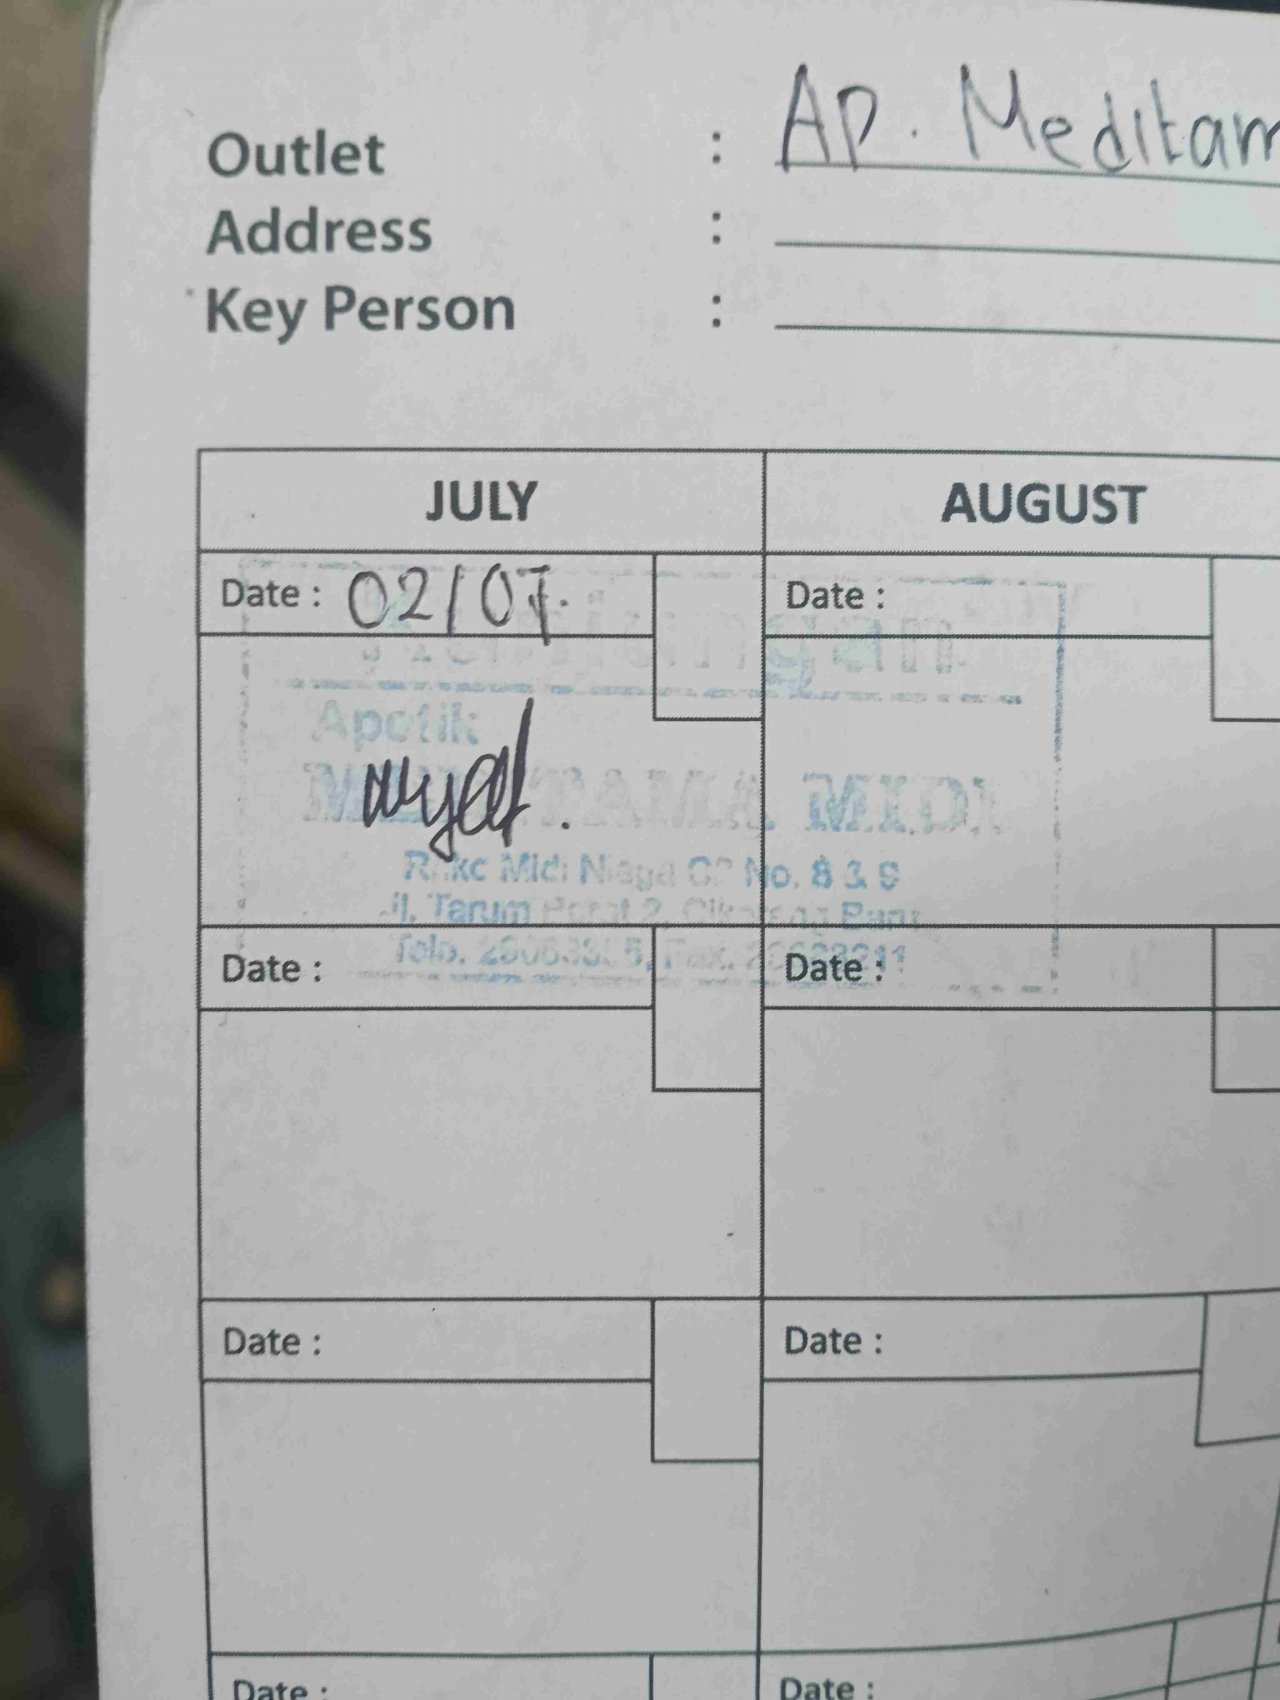 Outlet : AP. Meditam
Address :
Key Person :
JULY AUGUST
Date : 02/07. Date :
Kunjungan
Apotik
MEDITAMA MIDI
Ruko Midi Niaga No. 8 & 9
Jl. Tarum Barat 2, Cikarang Baru
Telp. Fax.
Date : Date :
Date : Date :
Date : Date :